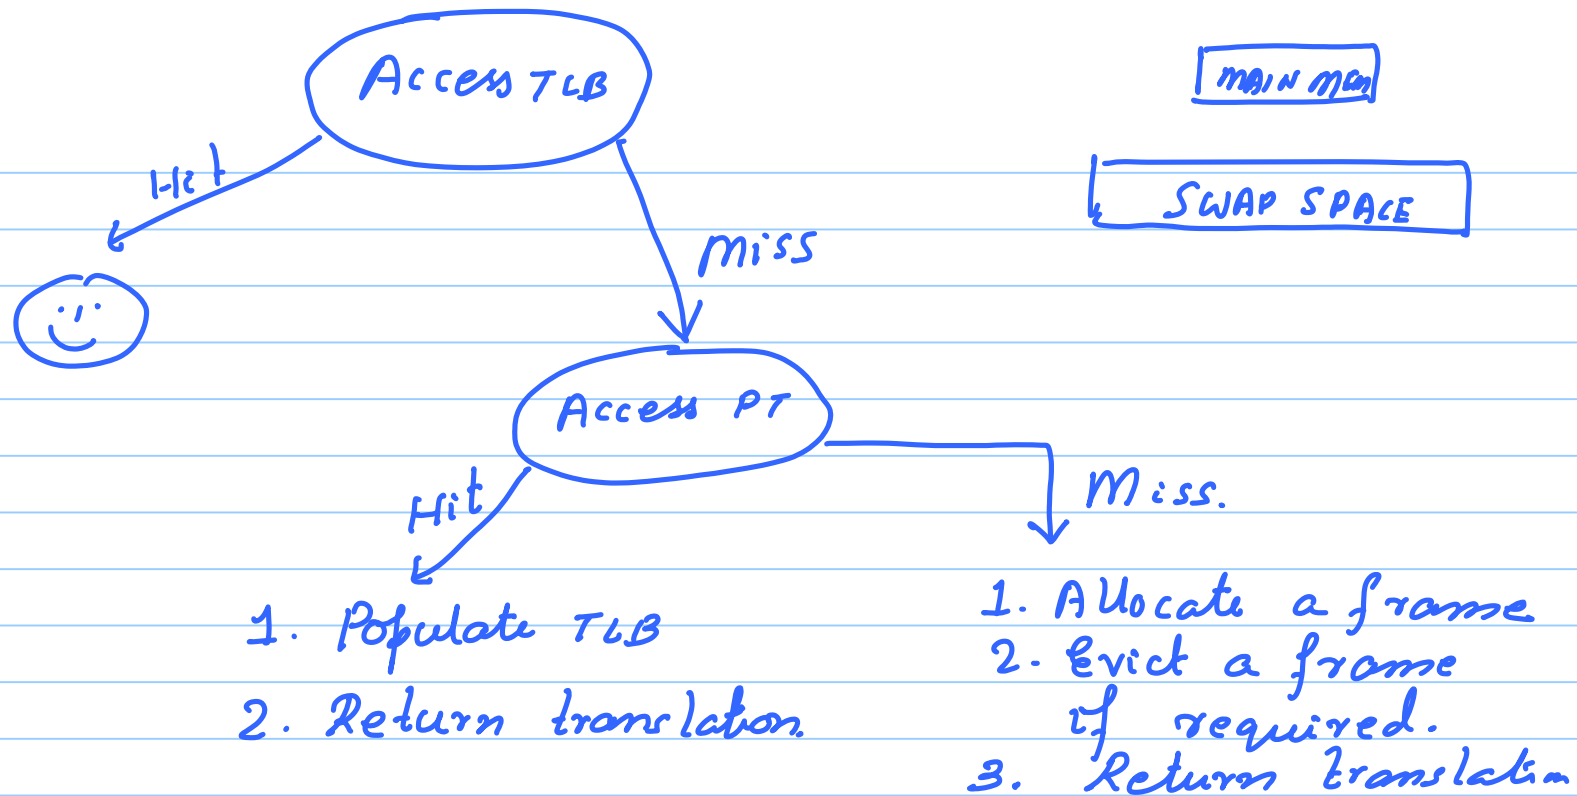 Access TLB
MAIN MEM
Hit
SWAP SPACE
Miss
Access PT
Hit
Miss.
1. Populate TLB
2. Return translation.
1. Allocate a frame
2. Evict a frame
if required.
3. Return translation